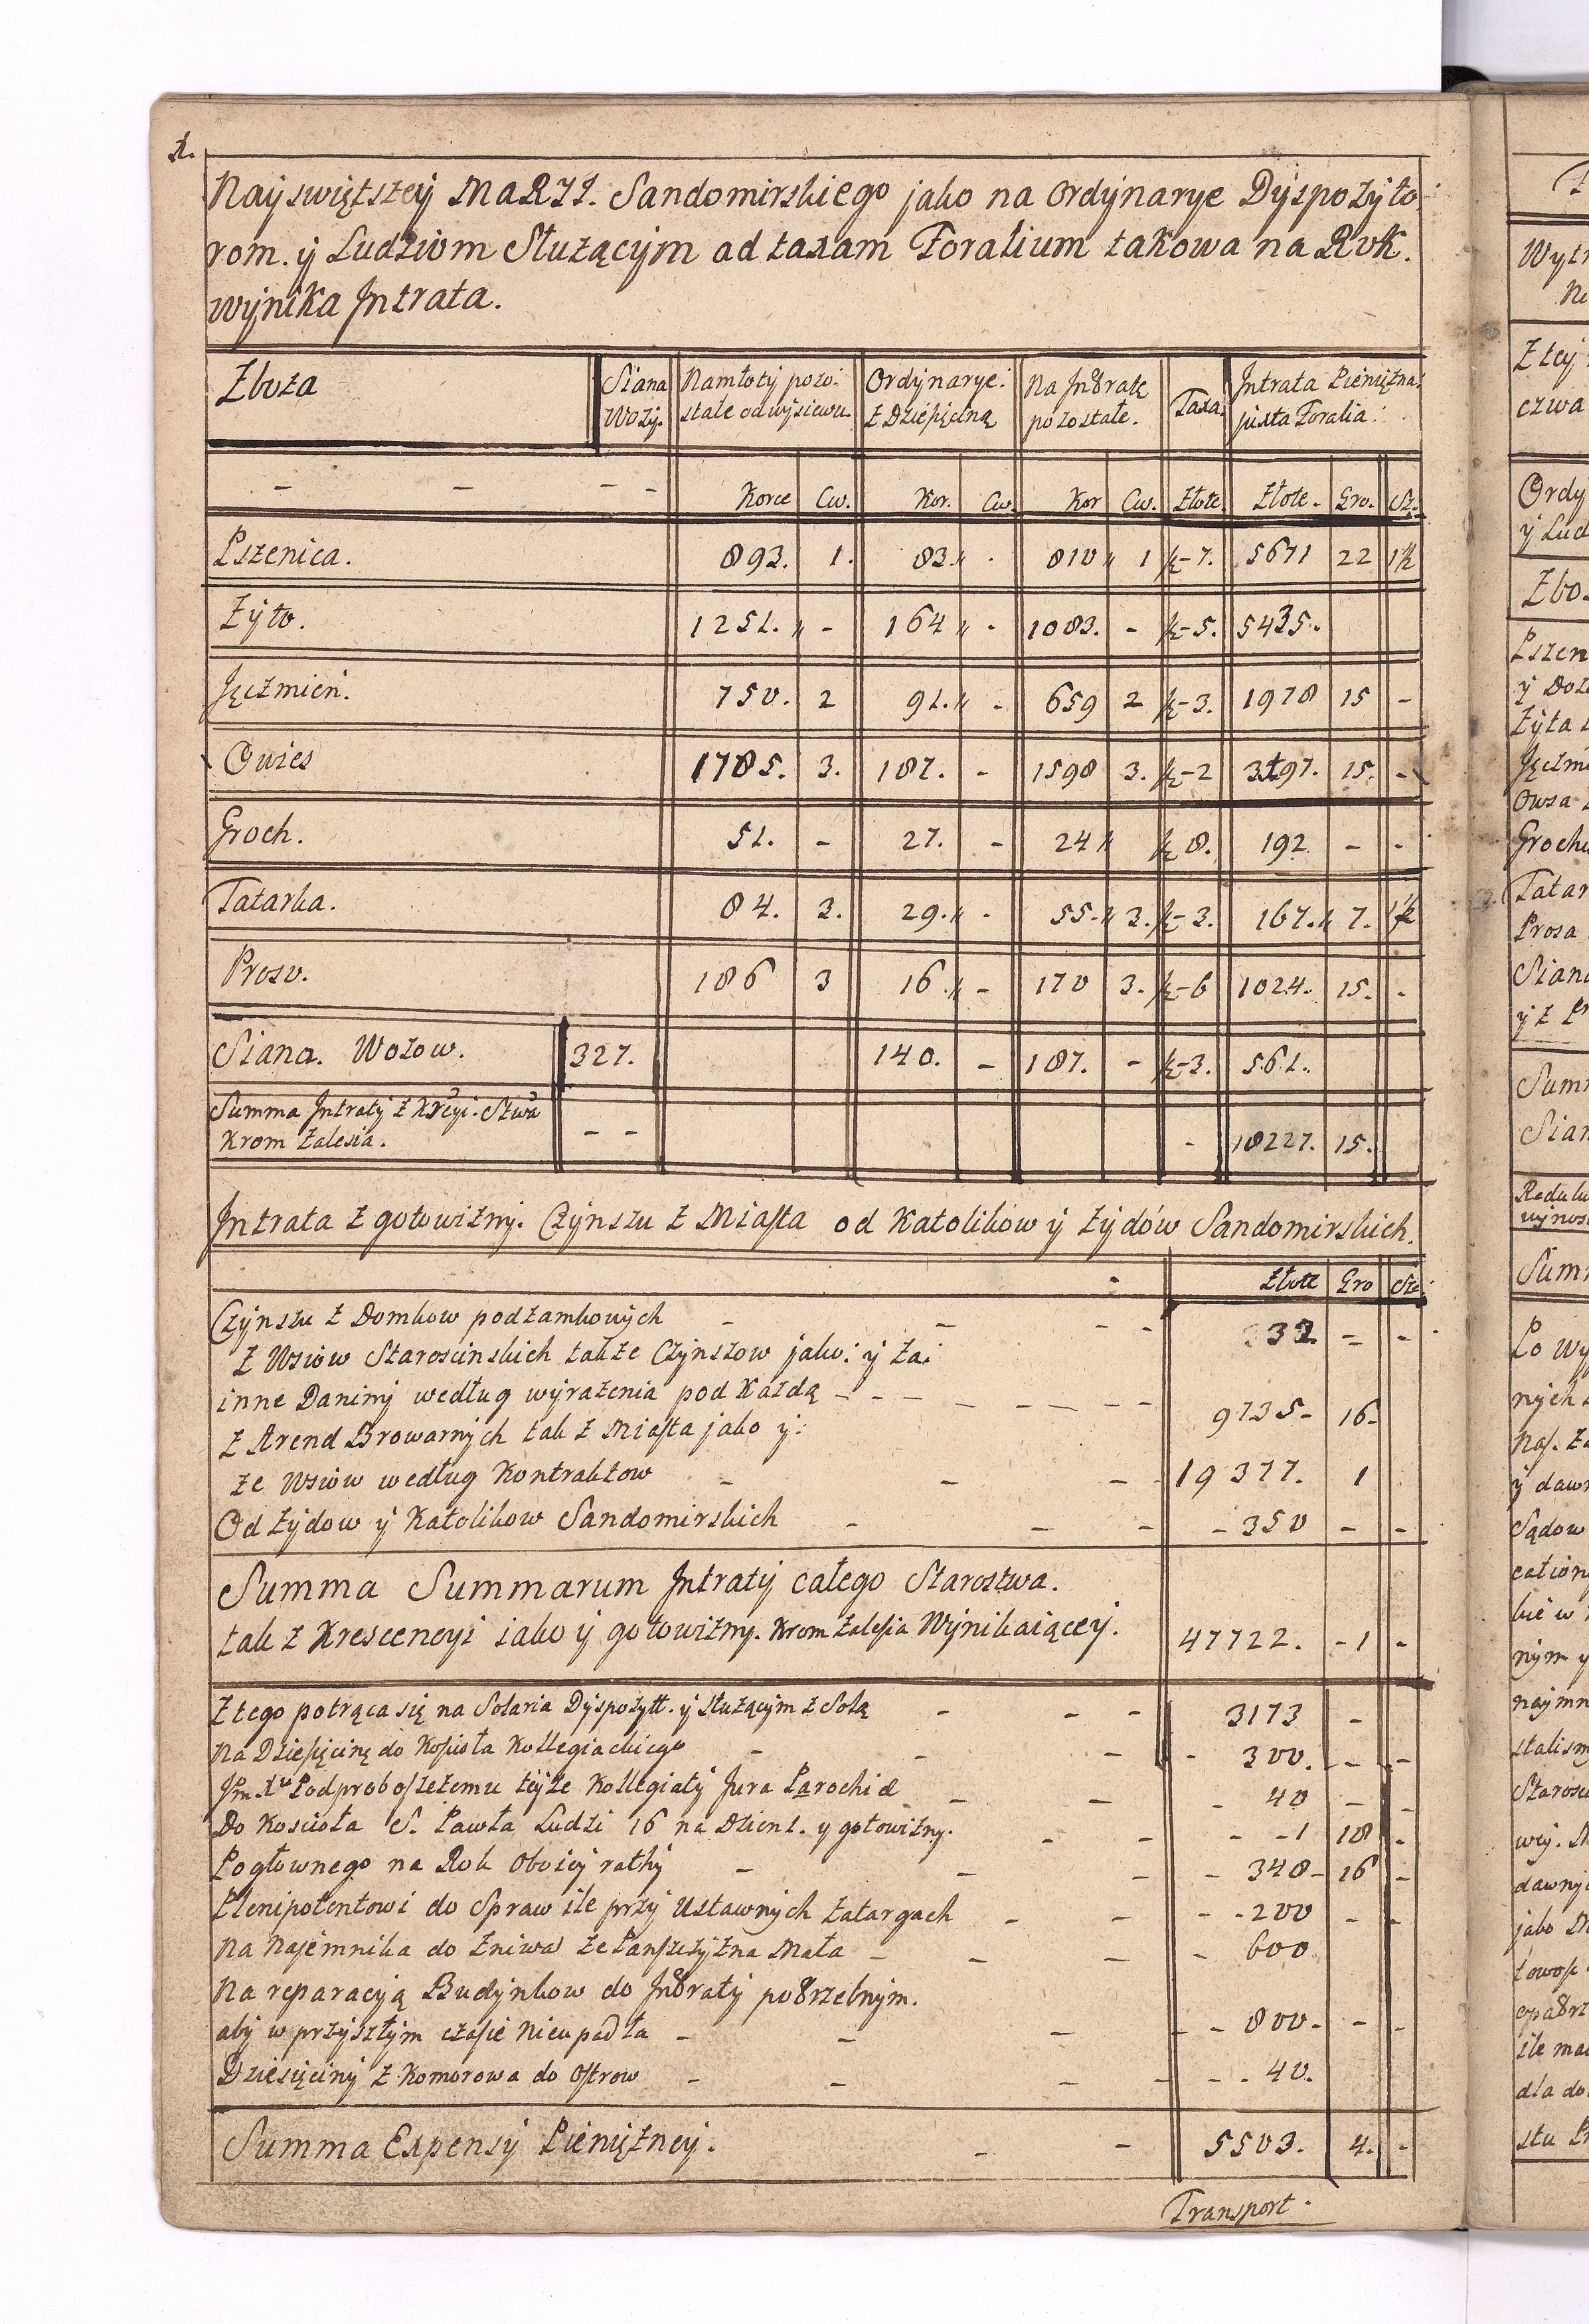 Nayswiętszey MARYI. Sandomirskiego jako na Ordynarye Dyspozyto:
rom. y Ludziom Służącym ad taxam Foralium takowa na Rok.
wynika Intrata.
Zboża | Siana Wozy. | Namłoty pozo: stałe od wysiewu. | Ordynarye: z Dziesięciną | Na Intratę pozostałe. | Taxa. | Intrata Pieniężna: juxta Foralia:
- - - - | Korce | Cw. | Kor. | Cw. | Kor | Cw. | Złote | Złote. | Gro. | Sz.
Pszenica. | 893. | 1. | 83.,, | . | 810,, | 1 | 7. | 5671 | 22 | 1½
Żyto. | 1251.,, | - | 164,, | . | 1083. | - | 5. | 5435.
Jęczmień. | 750. | 2 | 91.,, | - | 659 | 2 | 3. | 1978 | 15 | -
Owies | 1785. | 3. | 187. | - | 1598 | 3. | 2 | 3197. | 15. | -
Groch. | 51. | - | 27. | - | 24,, | 8. | 192 | - | -
Tatarka. | 84. | 3. | 29.,, | . | 55.,, | 3. | 3. | 167.,, | 7. | 1½
Proso. | 186 | 3 | 16.,, | - | 170 | 3. | 6 | 1024. | 15. | .
Siana. Wozow. | 327. | 140. | - | 187. | - | 3. | 561.
Summa Intraty z Krcyi. Stwa
Krom Zalesia. | - - | - | 18227. | 15.
Intrata z gotowizny. Czynszu z Miasta od Katolików y Żydów Sandomirskich.
Złote | Gro | Sze
Czynszu z Domkow podzamkowych - - - - 332. | - | -
Z Wsiów Starościnskich także Czynszow jako: y za:
inne Daniny według wyrażenia pod Każdą - - - 9735- | 16-
Z Arend Browarnych tak z Miasta jako y:
ze Wsiów według Kontraktow - - - 19377. | 1
Od Żydow y Katolikow Sandomirskich - - - - 350 | - | -
Summa Summarum Intraty całego Starostwa.
tak z Krescencyi iako y gotowizny. Krom Zalesia Wynikaiącey. 47722. | - 1 | -
Z tego potrąca się na Solaria Dyspozytt. y służącym z Solą - - - 3173 | -
Na Dziesięcinę do Kosioła Kollegiackiego - - - - 300. | - - | -
Jm. Xu Podproboszczemu teyże Kollegiaty Jura Parochiæ - - - 40 | - | -
Do Kosioła S. Pawła Ludzi 16 na Dzien 1. y gotowizny. - - - -1 | 18 | -
Pogłownego na Rok oboiey ratty - - - - 348- | 16 | -
Plenipotentowi do Spraw ile przy Ustawnych Zatargach - - - -200 | - | -
Na Najemnika do Żniwa ze Panszczyzna Mała - - - - 600
Na reparacyją Budynkow do Intraty potrzebnym.
aby w przyszłym czasie nieupadła - - - - - 800- | - | -
Dziesięciny z Komorowa do Ostrow - - - - - . 40.
Summa Expensy Pieniężney. - - 5503. | 4. | -
Transport.